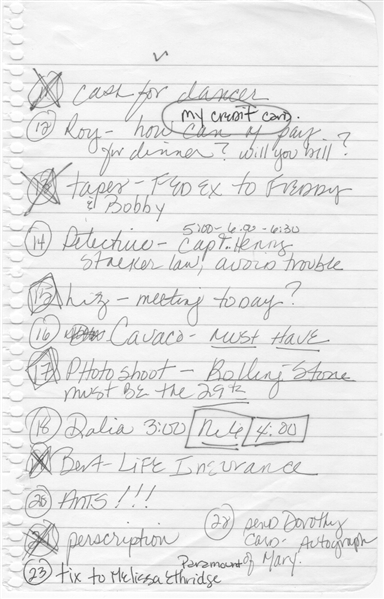 cash for dancer
my credit card.
12 Roy - how can I pay
for dinner? will you bill?
tapes - FED EX to FREDDY
& Bobby
5:00-6:00-6:30
14 Detective - Capt. Henry
Stalker law, avoid trouble
15 Liz - meeting today?
16 Cavaco - MUST HAVE
17 PHotoshoot - Rolling Stone
must BE the 29th
18 Dalia 3:00 Nile 4:00
Bert - LIFE INSURANCE
20 ANTS!!!
perscription
22 send Dorothy
Card - Autograph
of Mary.
Paramount
23 tix to Melissa Ethridge